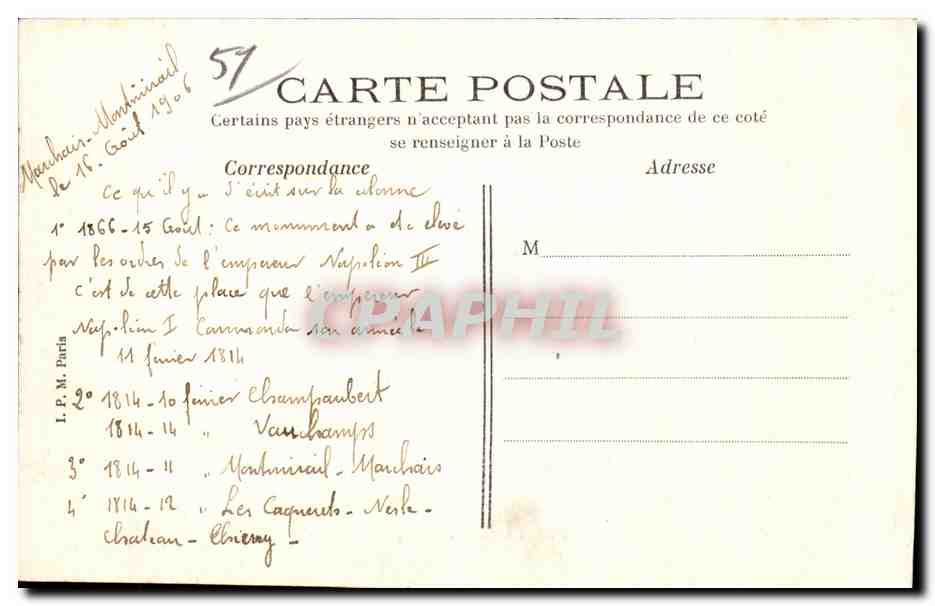 51
CARTE POSTALE
Certains pays étrangers n'acceptant pas la correspondance de ce coté
se renseigner à la Poste
Correspondance
Adresse
Marchais-Montmirail
le 16 Août 1906
Ce qu'il y a d'écrit sur la colonne
1° 1866-15 Août : Ce monument a été élevé
par les ordres de l'empereur Napoléon III
C'est de cette place que l'empereur
Napoléon I Commanda son armée le
11 février 1814
2° 1814-10 février Champaubert
1814-14 " Vauchamps
3° 1814-11 " Montmirail-Marchais
4° 1814-12 " Les Caquerets-Nesle-
Chateau-Thierry-
M
I. P. M. Paris
CPAPHIL